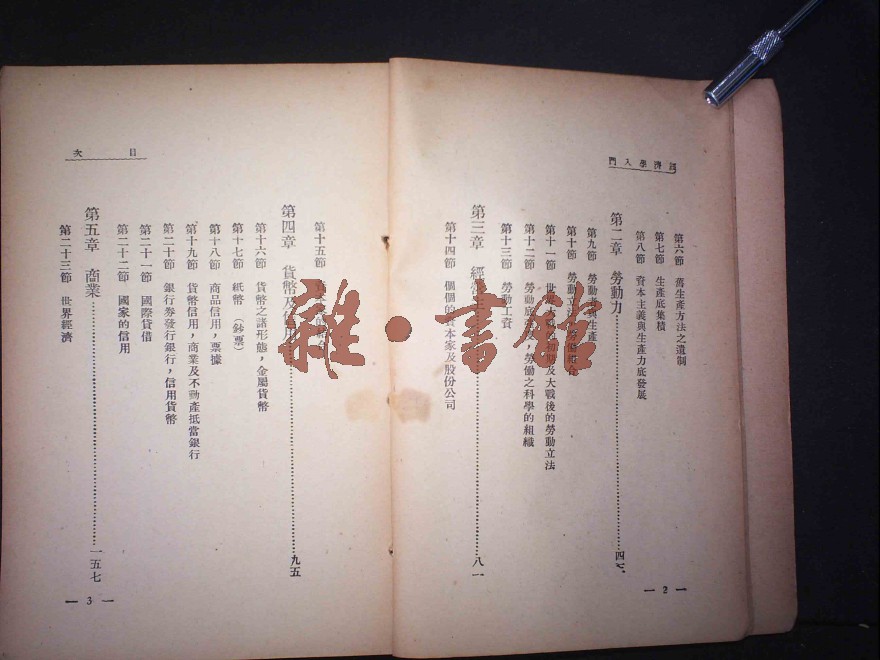 經濟學入門
第六節 舊生產方法之遺制
第七節 生產底集積
第八節 資本主義與生產力底發展
第二章 勞動力……四七
第九節 勞動者與生產
第十節 勞動立法
第十一節 世界大戰 及大戰後的勞動立法
第十二節 勞動底 ,勞働之科學的組織
第十三節 勞動工資
第三章 經營……八一
第十四節 個個的資本家及股份公司
— 2 —
目次
第十五節
第四章 貨幣及信用……九五
第十六節 貨幣之諸形態,金屬貨幣
第十七節 紙幣(鈔票)
第十八節 商品信用,票據
第十九節 貨幣信用,商業及不動產抵當銀行
第二十節 銀行券發行銀行,信用貨幣
第二十一節 國際貨借
第二十二節 國家的信用
第五章 商業……一五七
第二十三節 世界經濟
— 3 —
雜·書館